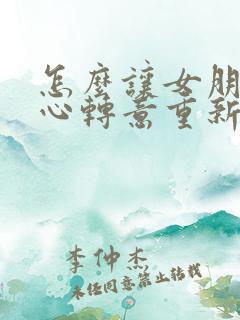 怎麼讓女朋
心轉意重新
李仲杰
未經同意禁止轉載